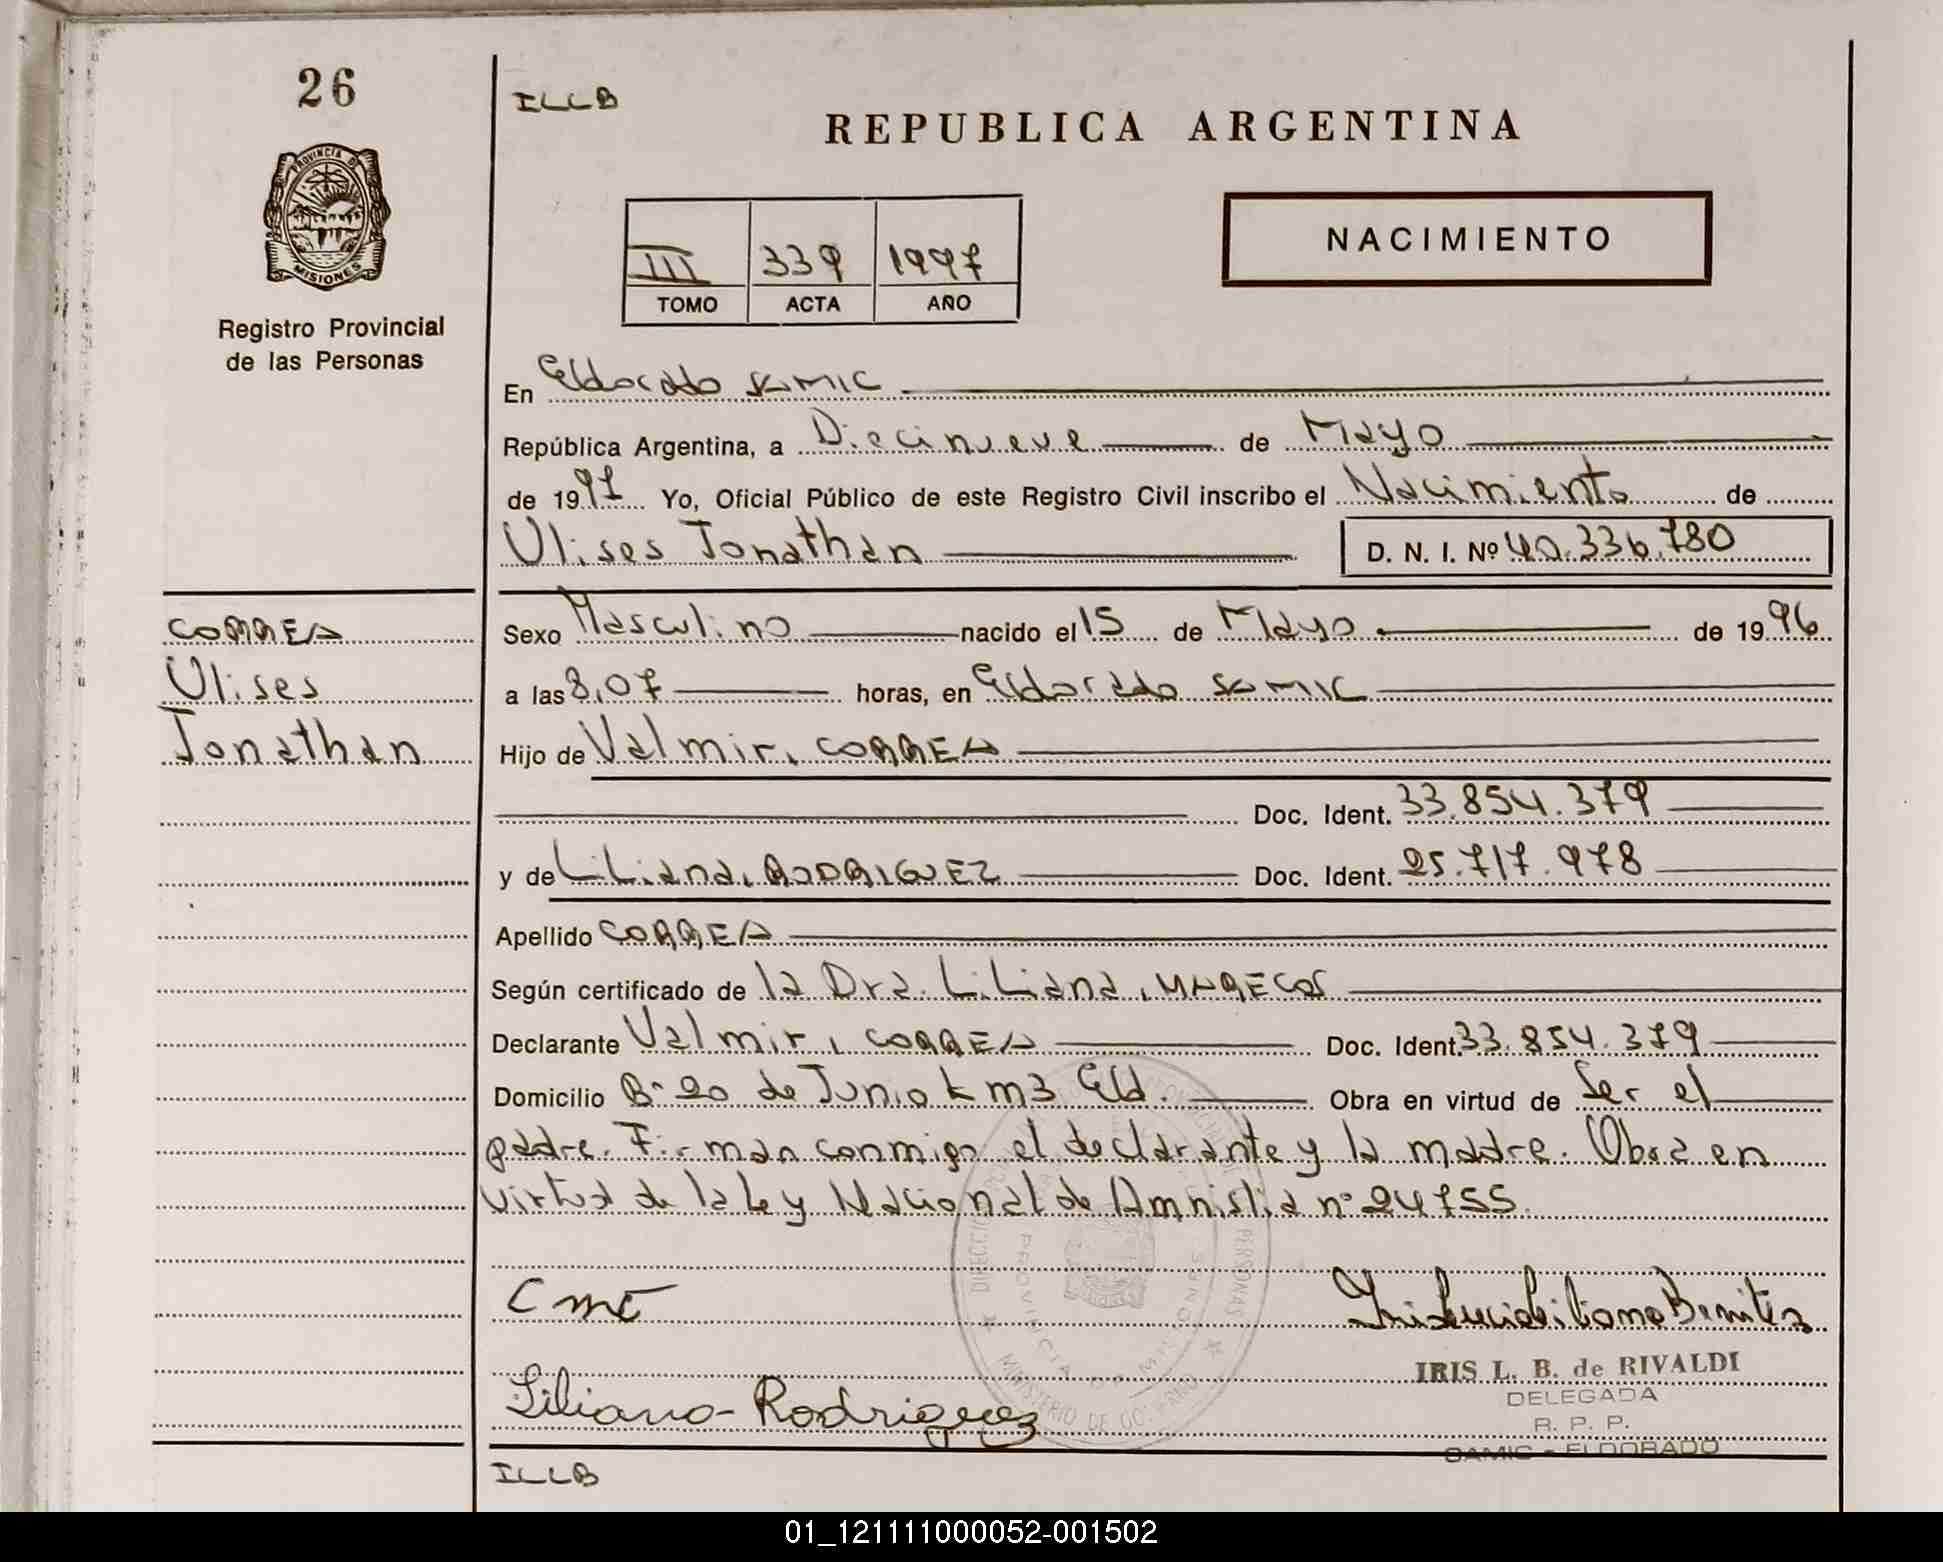 26
ILLB
REPUBLICA ARGENTINA
PROVINCIA DE
MISIONES
NACIMIENTO
III 339 1997
TOMO ACTA AÑO
Registro Provincial
de las Personas
En Eldorado SAMIC
República Argentina, a Diecinueve de Mayo
de 1997 Yo, Oficial Público de este Registro Civil inscribo el Nacimiento de
Ulises Jonathan D. N. I. Nº 40.336.780
CORREA
Ulises
Jonathan
Sexo Masculino nacido el 15 de Mayo de 1996
a las 8,07 horas, en Eldorado SAMIC
Hijo de Valmir, CORREA
Doc. Ident. 33.854.379
y de Liliana, RODRIGUEZ Doc. Ident. 25.717.978
Apellido CORREA
Según certificado de la Dra. Liliana, MARECOS
Declarante Valmir, CORREA Doc. Ident. 33.854.379
Domicilio Bº 20 de Junio km3 Eld. Obra en virtud de Ser el
padre. Firman conmigo el declarante y la madre. Obra en
virtud de la Ley Nacional de Amnistia nº 24755.
Liliana Rodriguez
IRIS L. B. de RIVALDI
DELEGADA
R. P. P.
SAMIC - ELDORADO
MINISTERIO DE GOBIERNO
PROVINCIA DE MISIONES
ILLB
01_121111000052-001502